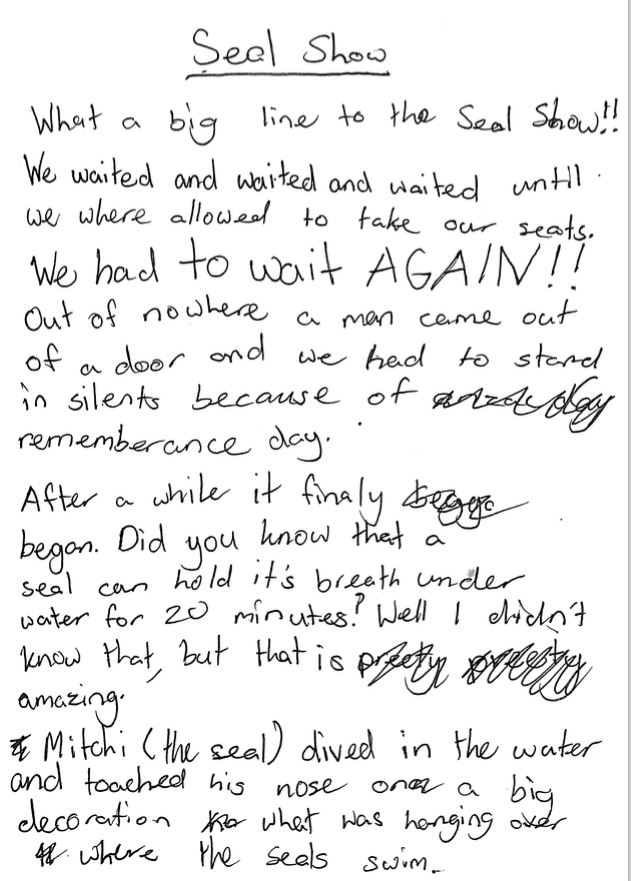 Seal Show
What a big line to the Seal Show!!
We waited and waited and waited until
we where allowed to take our seats.
We had to wait AGAIN!!
Out of nowhere a man came out
of a door and we had to stand
in silents because of
rememberance day.
After a while it finaly
began. Did you know that a
seal can hold it's breath under
water for 20 minutes? Well I didn't
know that, but that is
amazing.
Mitchi (the seal) dived in the water
and toached his nose on a big
decoration what was hanging over
where the seals swim.